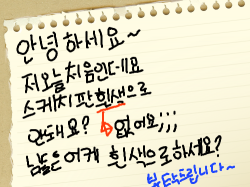 안녕하세요~
저오늘 처음인데요
스케치판 흰색으로
안돼요? 없어요;;;
님들은 어케 흰색으로하세요?
부탁드립니다~